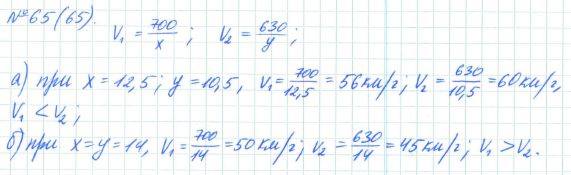 №65(65). V₁ = 700/x ; V₂ = 630/y ;
а) при x = 12,5; y = 10,5, V₁ = 700/12,5 = 56 км/г; V₂ = 630/10,5 = 60 км/г,
V₁ < V₂ ;
б) при x = y = 14, V₁ = 700/14 = 50 км/г; V₂ = 630/14 = 45 км/г; V₁ > V₂.